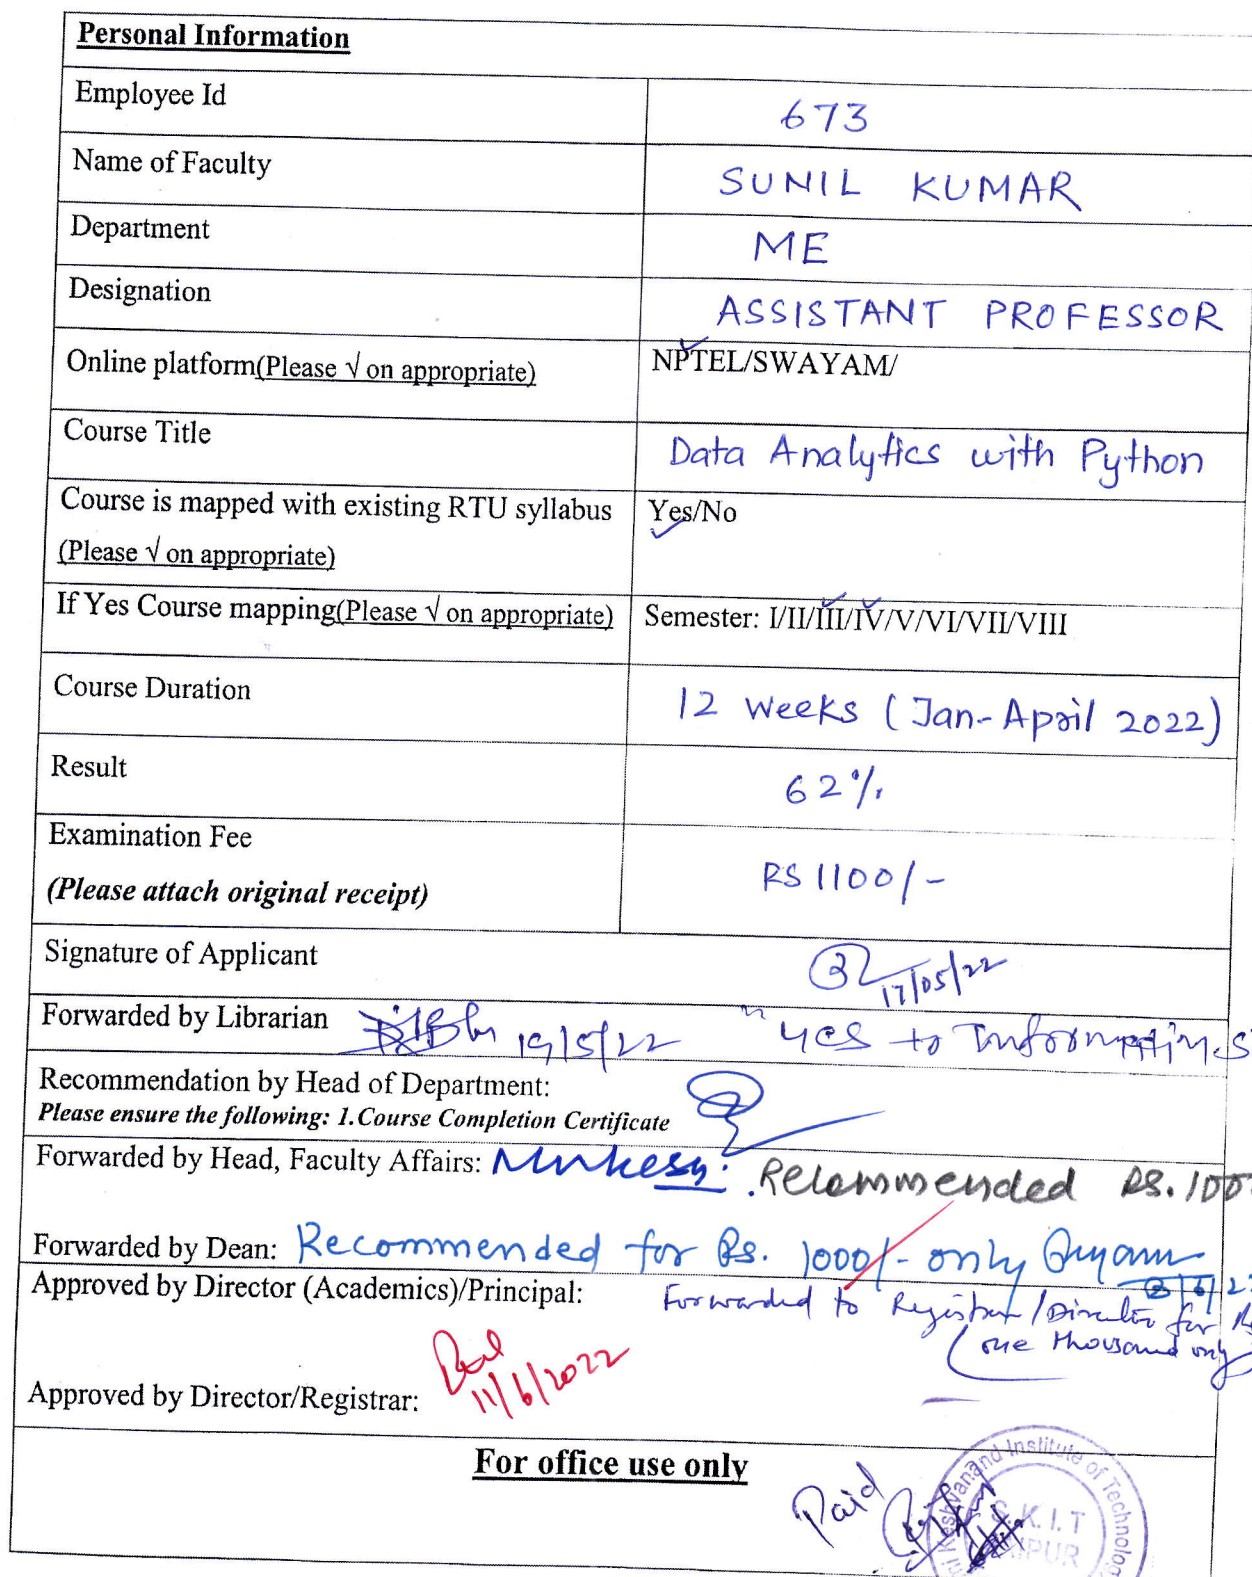 Personal Information
Employee Id 673
Name of Faculty SUNIL KUMAR
Department ME
Designation ASSISTANT PROFESSOR
Online platform(Please √ on appropriate) NPTEL/SWAYAM/
Course Title Data Analytics with Python
Course is mapped with existing RTU syllabus Yes/No
(Please √ on appropriate)
If Yes Course mapping(Please √ on appropriate) Semester: I/II/III/IV/V/VI/VII/VIII
Course Duration 12 Weeks (Jan-April 2022)
Result 62%
Examination Fee
(Please attach original receipt) RS 1100/-
Signature of Applicant 17/05/22
Forwarded by Librarian 19/5/22 "Yes to Information.s
Recommendation by Head of Department:
Please ensure the following: 1.Course Completion Certificate
Forwarded by Head, Faculty Affairs: Mukesh. Recommended Rs. 100
Forwarded by Dean: Recommended for Rs. 1000/- only
Approved by Director (Academics)/Principal: Forwarded to Registrar/Director for
(one thousand only
Approved by Director/Registrar: 11/6/2022
For office use only
Paid
Keshvanand Institute of Technolog
S.K.I.T
JAIPUR